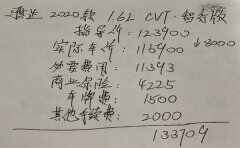 2020款 1.6L CVT
指导价: 123900
实际车价: 115900 ↓8000
必要费用: 11393
商业保险: 4225
车牌费: 1500
其他手续费: 2000
133909